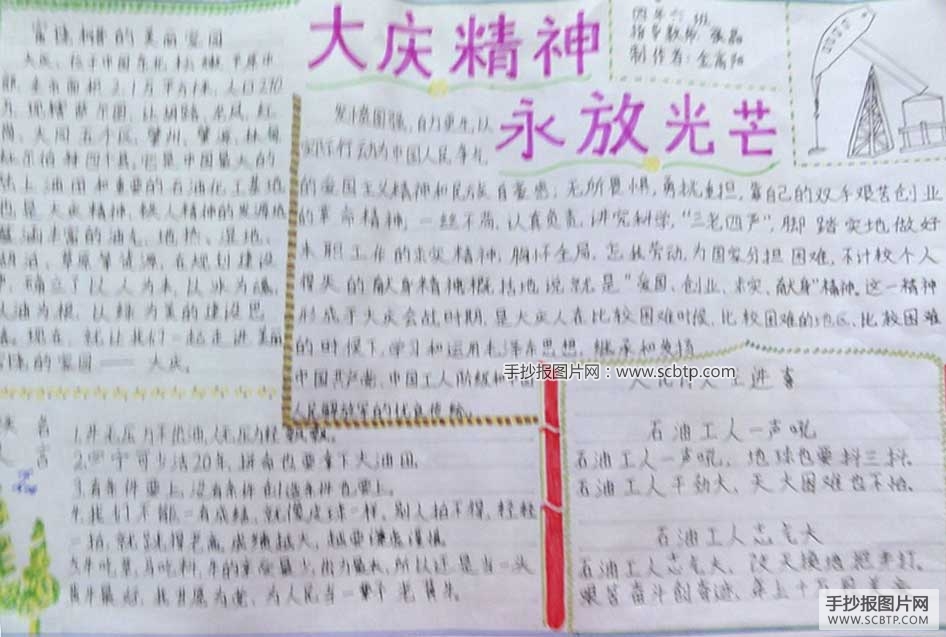 大庆精神
永放光芒
四年六班
指导教师:张晶
制作者:金高阳
的美丽家园
大庆,位于中国东北,松嫩平原中
部,总面积2.1万平方千米,人口270
万,现辖萨尔图、让胡路、龙凤、红
岗、大同五个区,肇州、肇源、林甸
杜尔伯特四个县,它是中国最大的
陆上油田和重要的石油化工基地
也是大庆精神,铁人精神的发源地
蕴涵丰富的油气、地热、湿地、
湖泊、草原等资源,在规划建设
中,确立了以人为本,以水为魂,
以油为根,以绿为美的建设
现在,就让我们一起走进美丽
的家园——大庆。
发愤图强,自力更生,以
实际行动为中国人民争气
的爱国主义精神和民族自豪感;无所畏惧,勇挑重担,靠自己的双手艰苦创业
的革命精神;一丝不苟,认真负责,讲究科学,“三老四严”,脚踏实地做好
本职工作的求实精神,胸怀全局,忘我劳动,为国家分担困难,不计较个人
得失的献身精神概括地说就是“爱国、创业、求实、献身”精神。这一精神
形成于大庆会战时期,是大庆人在比较困难时候,比较困难的地区,比较困难
的时候下,学习和运用毛泽东思想,继承和发扬
中国共产党、中国工人阶级和中国
人民解放军的优良传统。
手抄报图片网:www.scbtp.com
铁人名言
1.井无压力不出油,人无压力轻飘飘。
2.宁可少活20年,拼命也要拿下大油田。
3.有条件要上,没有条件创造条件也要上。
4.我们不能一有成绩,就像皮球一样,别人拍不得,轻轻
一拍,就跳得老高,成绩越大,越要谦虚谨慎
5.牛吃草,马吃料,牛的享受最少,出力最大,所以还是当一头
黄牛最好,我甘愿为党、为人民当一辈子老黄牛。
石油工人一声吼
石油工人一声吼,地球也要抖三抖。
石油工人干劲大,天大困难也不怕。
石油工人志气大
石油工人志气大,改天换地把手打。
艰苦奋斗创奇迹,
手抄报图片网
WWW.SCBTP.COM